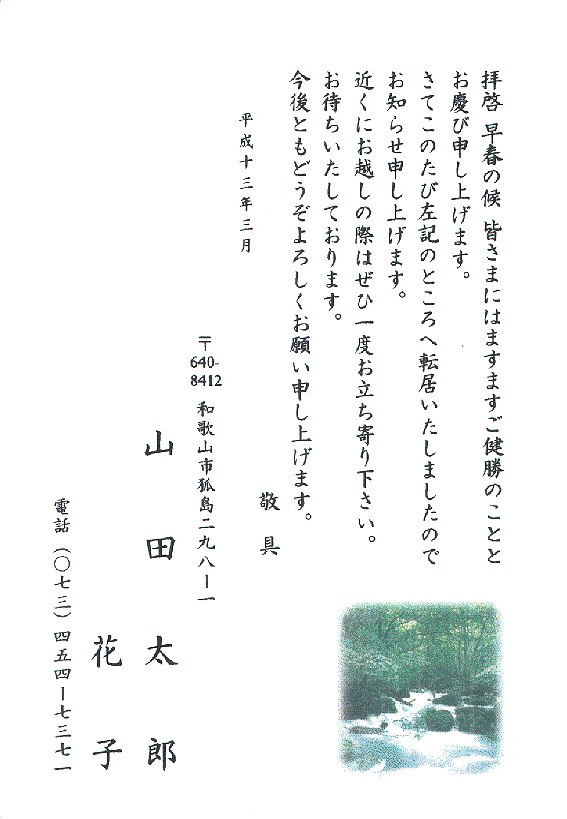 拝啓 早春の候 皆さまにはますますご健勝のことと
お慶び申し上げます。
さてこのたび左記のところへ転居いたしましたので
お知らせ申し上げます。
近くにお越しの際はぜひ一度お立ち寄り下さい。
お待ちいたしております。
今後ともどうぞよろしくお願い申し上げます。
敬具
平成十三年三月
〒640-8412 和歌山市狐島二九八ー一
山田太郎
花子
電話 (〇七三) 四五四ー七三七一